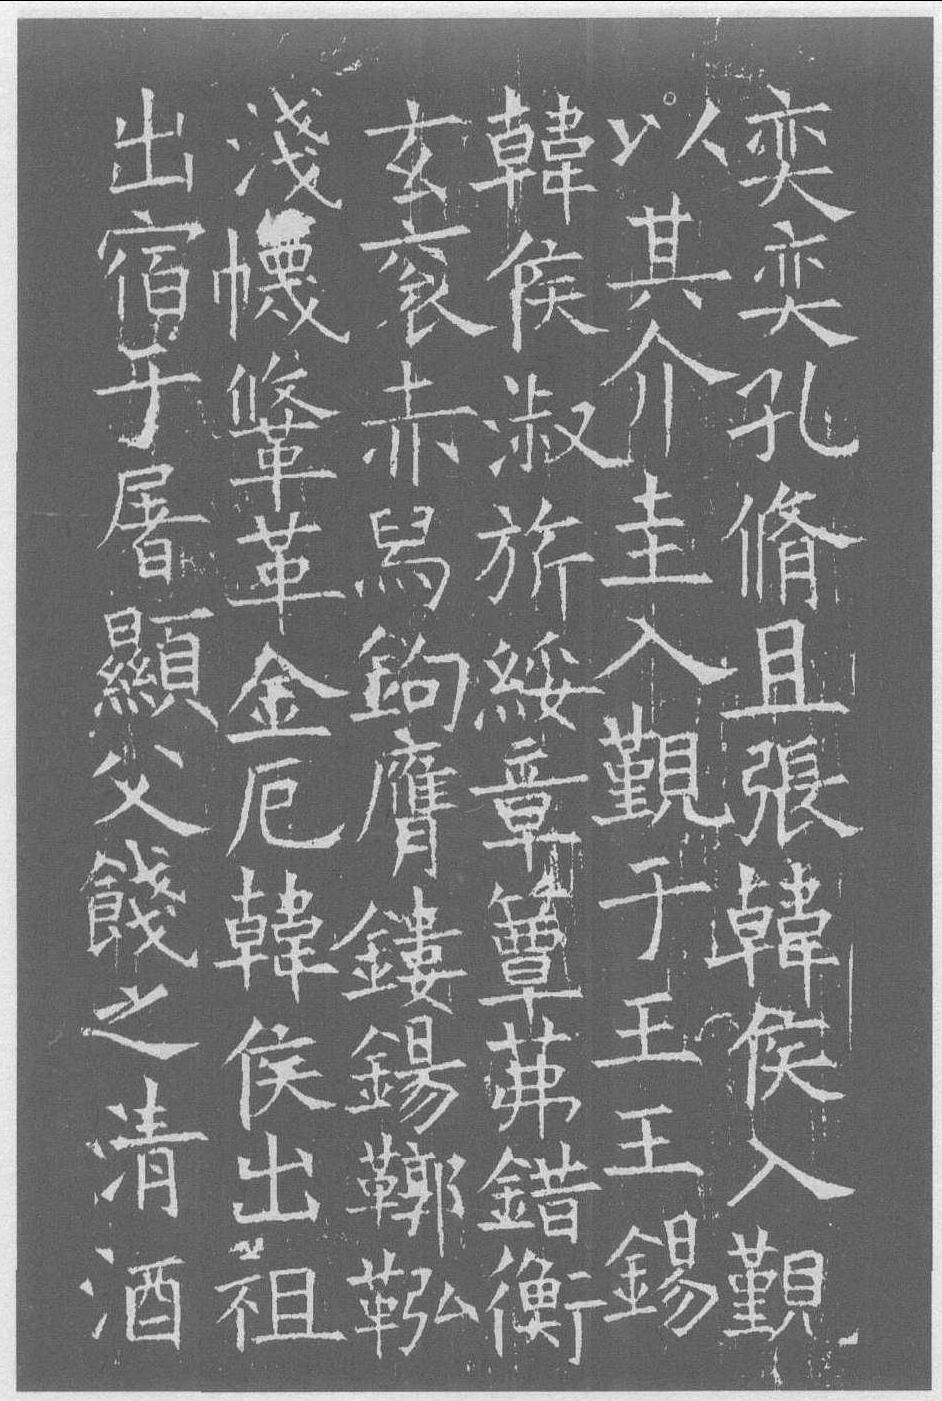 奕奕孔脩且張韓侯入覲
以其介圭入覲于王王錫
韓侯淑旂綏章簟茀錯衡
玄袞赤舄鉤膺鏤鍚鞹鞃
淺幭鞗革金厄韓侯出祖
出宿于屠顯父餞之清酒